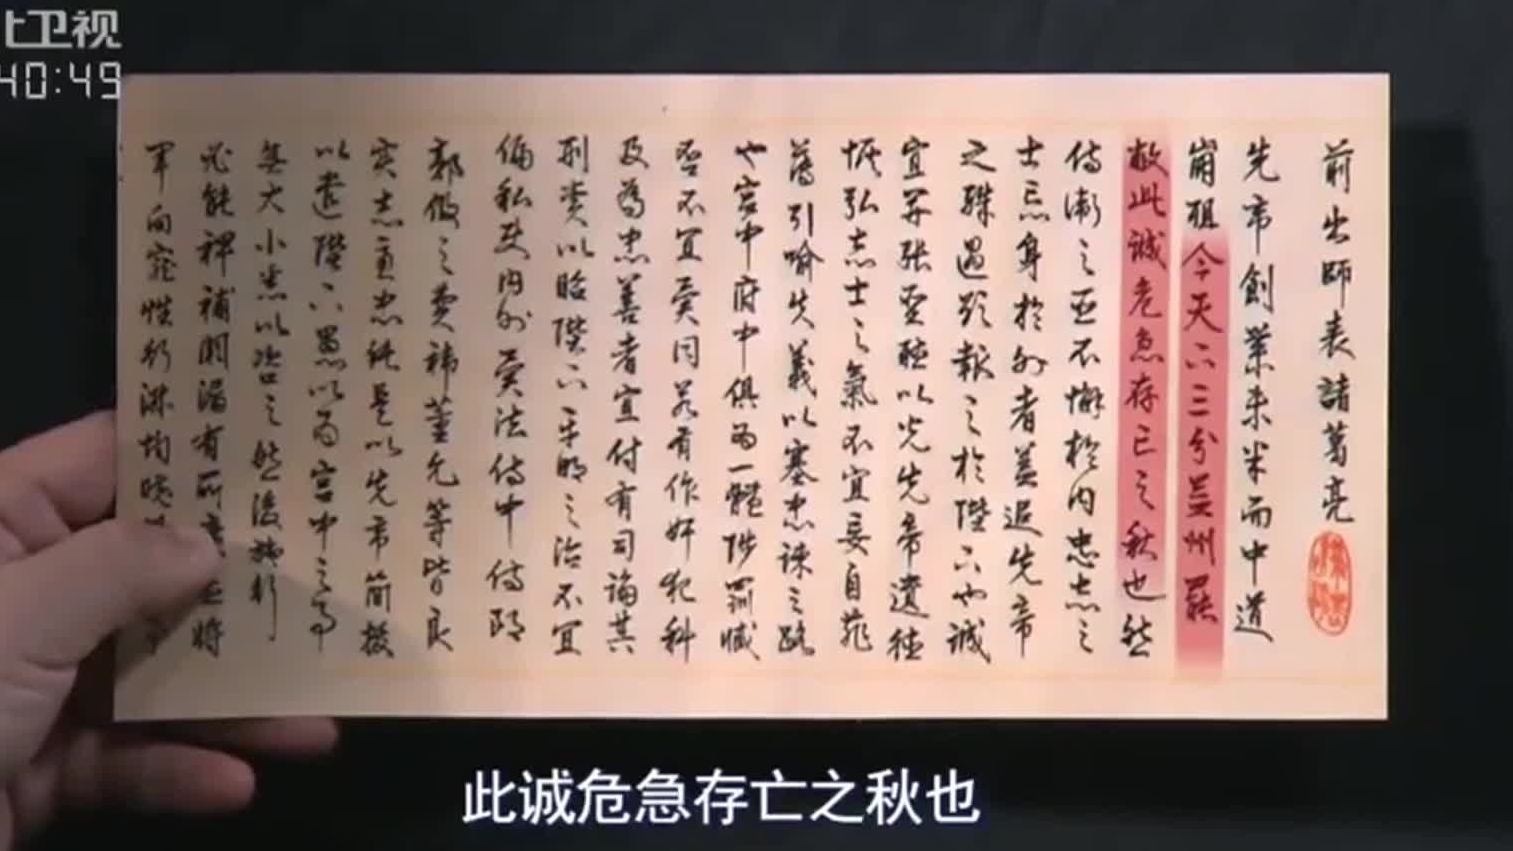 卫视
40:49
前出師表諸葛亮
先帝創業未半而中道
崩殂今天下三分益州罷
敝此誠危急存亡之秋也然
侍衛之臣不懈於內忠志之
士忘身於外者蓋追先帝
之殊遇欲報之於陛下也誠
宜開張聖聽以光先帝遺德
恢弘志士之氣不宜妄自菲
薄引喻失義以塞忠諫之路
也宮中府中俱為一體陟罰臧
否不宜異同若有作奸犯科
及為忠善者宜付有司論其
刑賞以昭陛下平明之治不宜
偏私使內外異法侍中侍郎
郭攸之費禕董允等皆良
實志慮忠純是以先帝簡拔
以遺陛下愚以為宮中之事
無大小悉以咨之然後施行
必能裨補闕漏有所廣益將
軍向寵性行淑均曉
此诚危急存亡之秋也